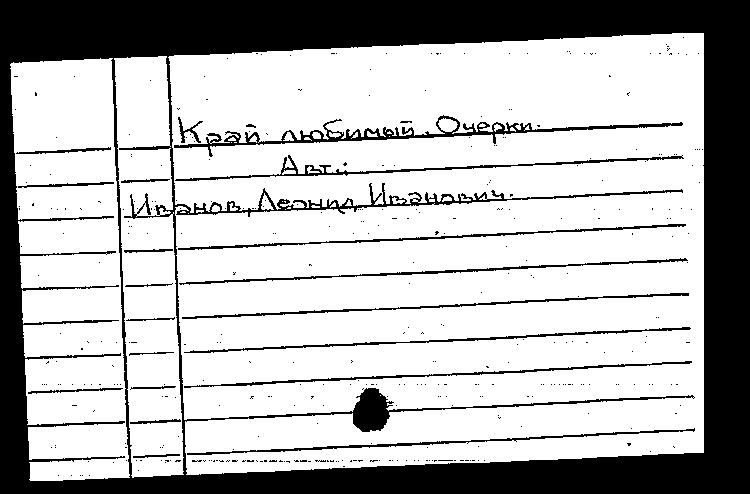 Край любимый. Очерки.
Авт.:
Иванов, Леонид Иванович.